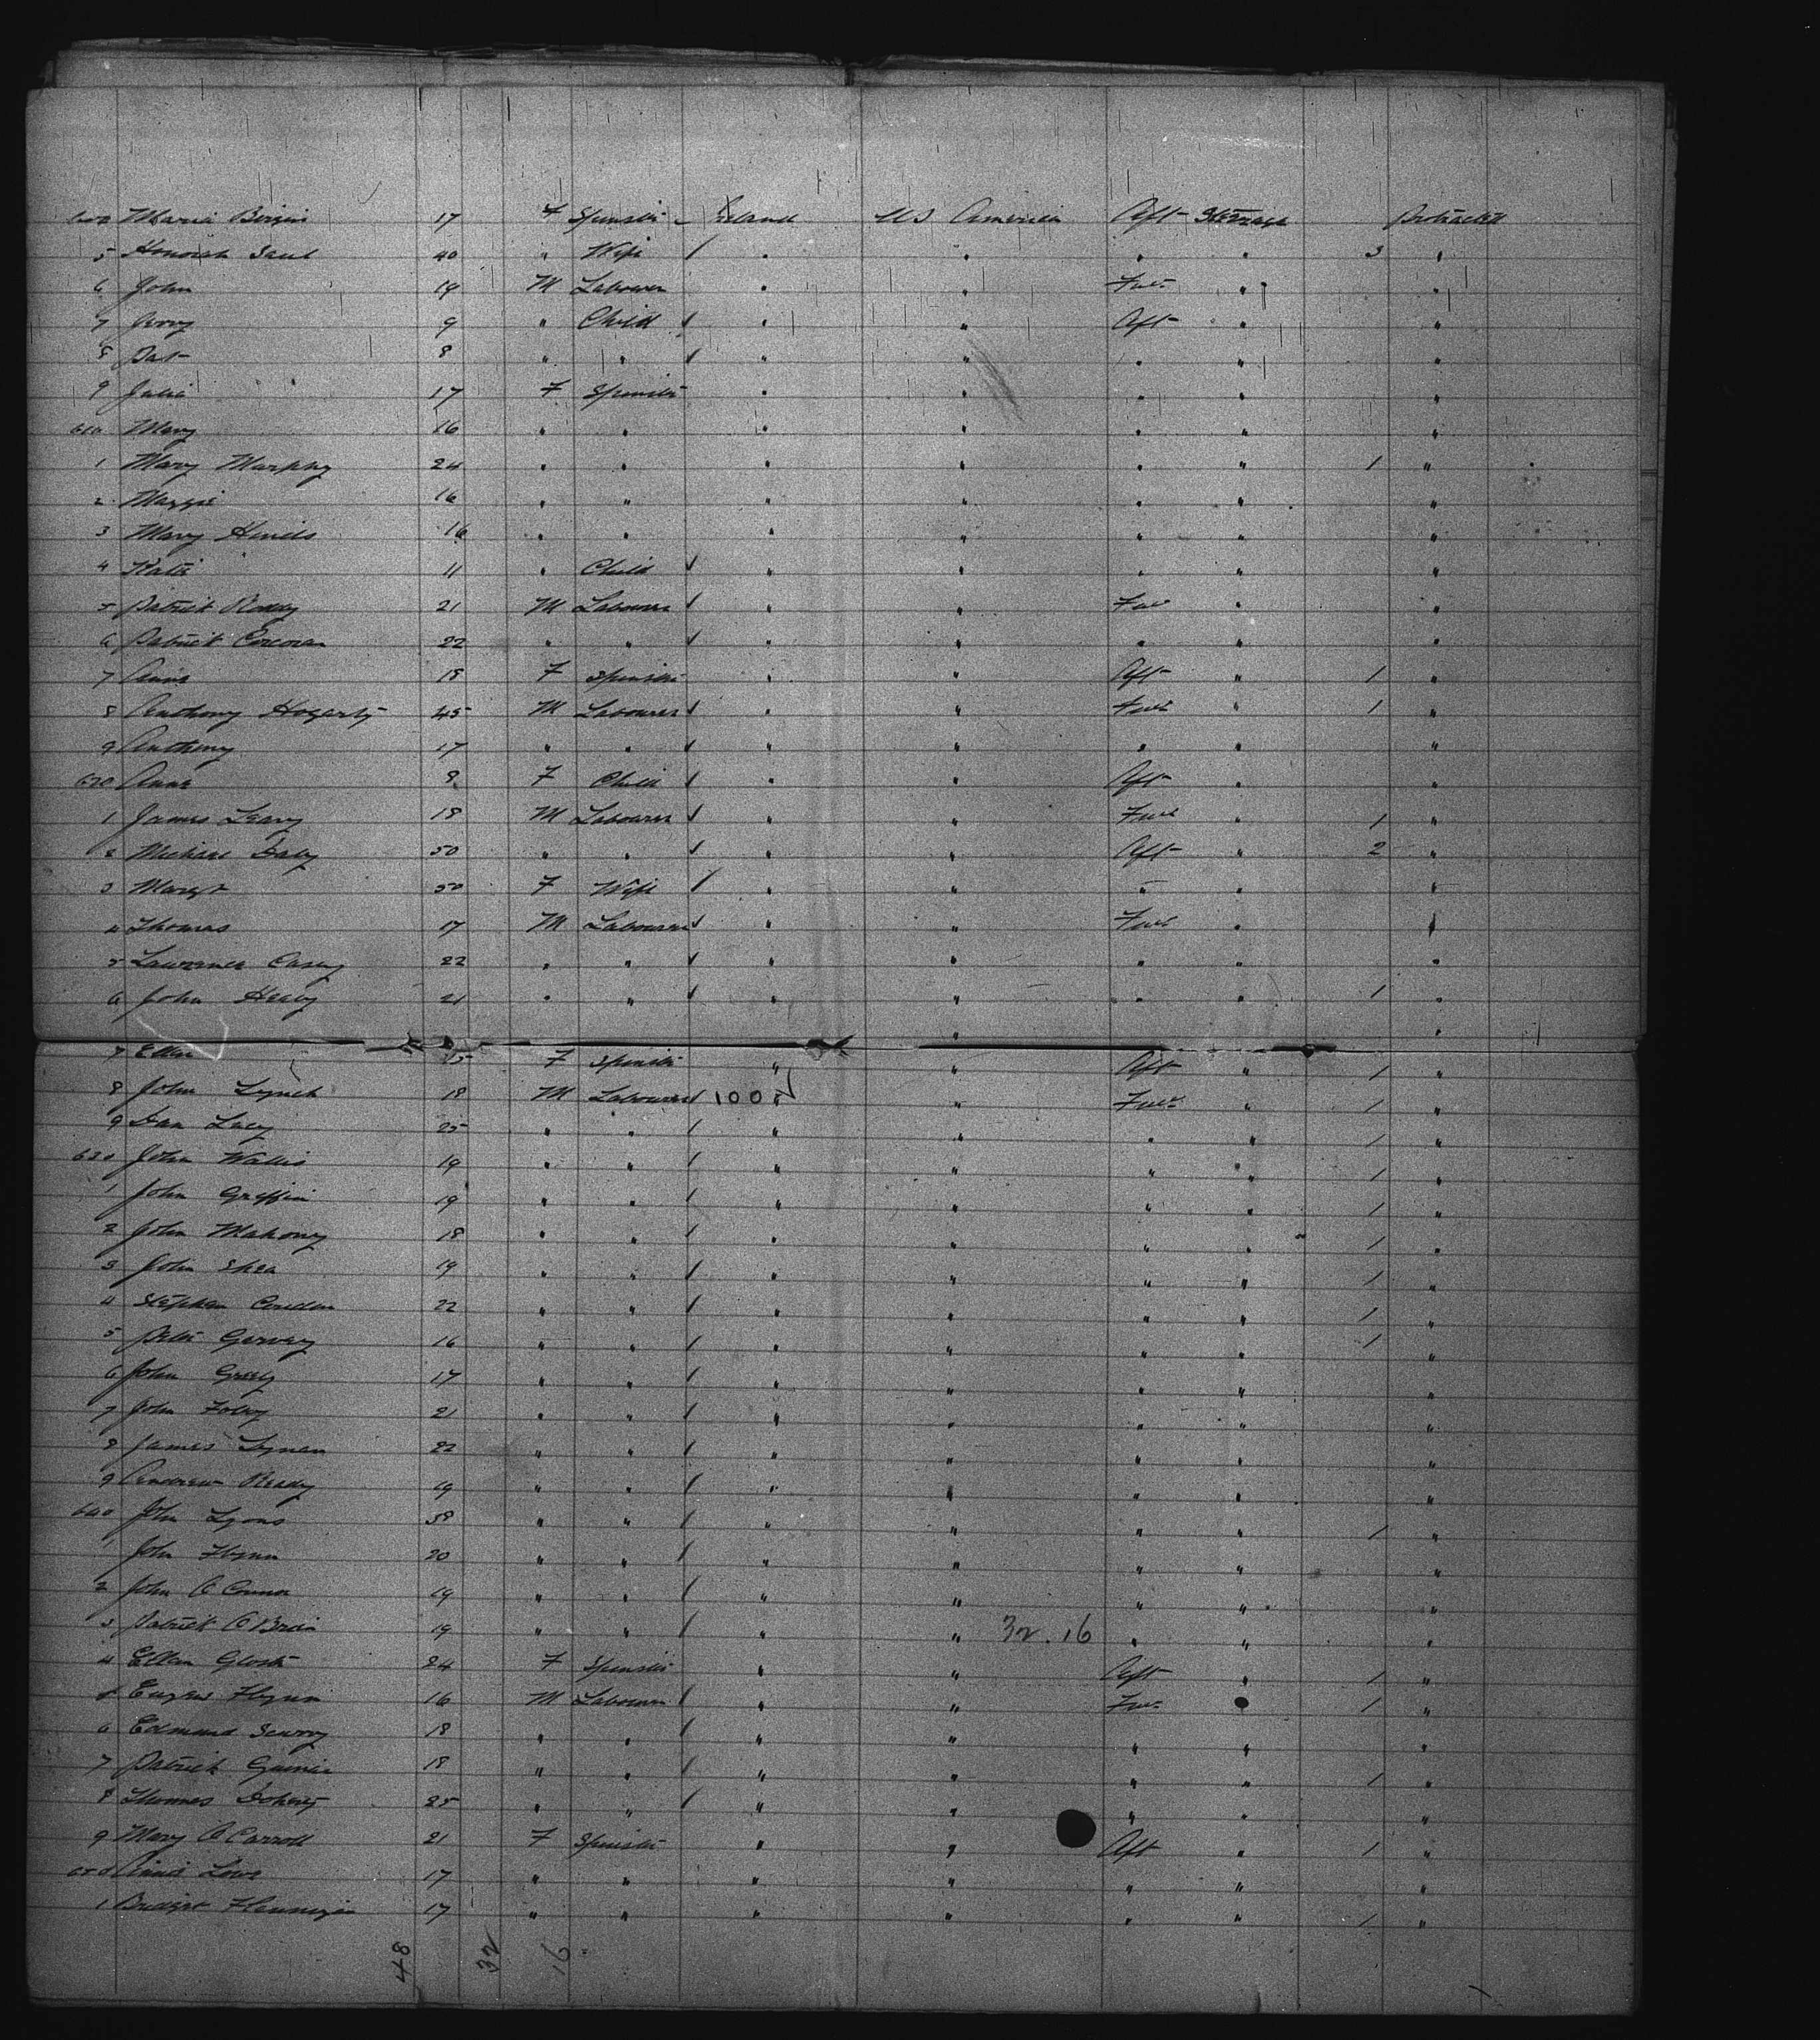 Maria 17 F Spinster Ireland US America Aft Steerage Protracted
5 Honorah 40 " Wife " " " " 3 "
6 John 19 M Labourer " " Fwd " "
7 Jerry 9 " Child " " Aft " "
8 Pat 8 " " " " " " "
9 Julia 17 F Spinster " " " " "
610 Mary 16 " " " " " " "
1 Mary Murphy 24 " " " " " " 1 "
2 Maggie 16 " " " " " " "
3 Mary Hinds 16 " " " " " " "
4 Katie 11 " Child " " " " "
5 Patrick Roddy 21 M Labourer " " Fwd " "
6 Patrick Corcoran 22 " " " " " " "
7 Annie 18 F Spinster " " Aft " 1 "
8 Anthony Hogarty 45 M Labourer " " Fwd " 1 "
9 Anthony 17 " " " " " " "
620 Anne 8 F Child " " Aft " "
1 James Leary 18 M Labourer " " Fwd " 1 "
2 Michael Daly 50 " " " " Aft " 2 "
3 Margt 50 F Wife " " " " "
4 Thomas 17 M Labourer " " Fwd " "
5 Lawrence Casey 22 " " " " " " "
6 John Healy 21 " " " " " " 1 "
7 Ellen 15 F Spinster " " Aft " 1 "
8 John Lynch 18 M Labourer 100 " " Fwd " 1 "
9 Dan Lucy 25 " " " " " " 1 "
630 John Wallis 19 " " " " " " 1 "
1 John Griffin 19 " " " " " " 1 "
2 John Mahony 18 " " " " " " 1 "
3 John Shea 19 " " " " " " 1 "
4 Stephen 22 " " " " " " 1 "
5 Peter Garvey 16 " " " " " " 1 "
6 John 17 " " " " " " "
7 John Foley 21 " " " " " " "
8 James 22 " " " " " " "
9 Andrew Ready 19 " " " " " " "
640 John Lyons 38 " " " " " " 1 "
1 John Flynn 20 " " " " " " "
2 John O Connor 19 " " " " " " "
3 Patrick O Brien 19 " " " " 32.16 " " "
4 Ellen 24 F Spinster " " Aft " 1 "
5 Eugene Flynn 16 M Labourer " " Fwd " 1 "
6 Edmund 18 " " " " " " "
7 Patrick 18 " " " " " " 1 "
8 Thomas Doherty 25 " " " " " " "
9 Mary O Carroll 21 F Spinster " " Aft " 1 "
650 Annie Lowe 17 " " " " " " "
1 Bridget Flannigan 17 " " " " " " 1 "
48 32 16